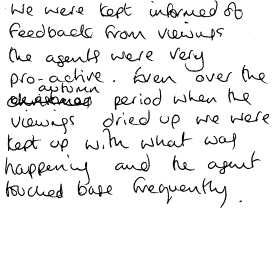 We were kept informed of
feedback from viewings
the agents were very
pro-active. Even over the
autumn
period when the
viewings dried up we were
kept up with what was
happening and he agent
touched base frequently.